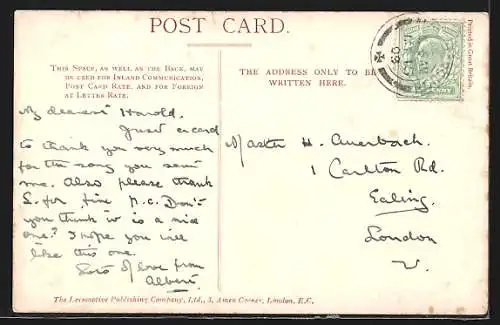 POST CARD.
THIS SPACE, AS WELL AS THE BACK, MAY
BE USED FOR INLAND COMMUNICATION,
POST CARD RATE, AND FOR FOREIGN
AT LETTER RATE.
THE ADDRESS ONLY TO BE
WRITTEN HERE.
Printed in Great Britain.
My dearest Harold.
Just a card
to thank you very much
for the song you sent
me. Also please thank
S. for fine p.c. Don't
you think it is a nice
one? I hope you will
like this one.
Lots of love from
Albert.
Master H. Auerbach.
1 Carlton Rd.
Ealing.
London
W.
The Locomotive Publishing Company, Ltd., 3, Amen Corner, London, E.C.